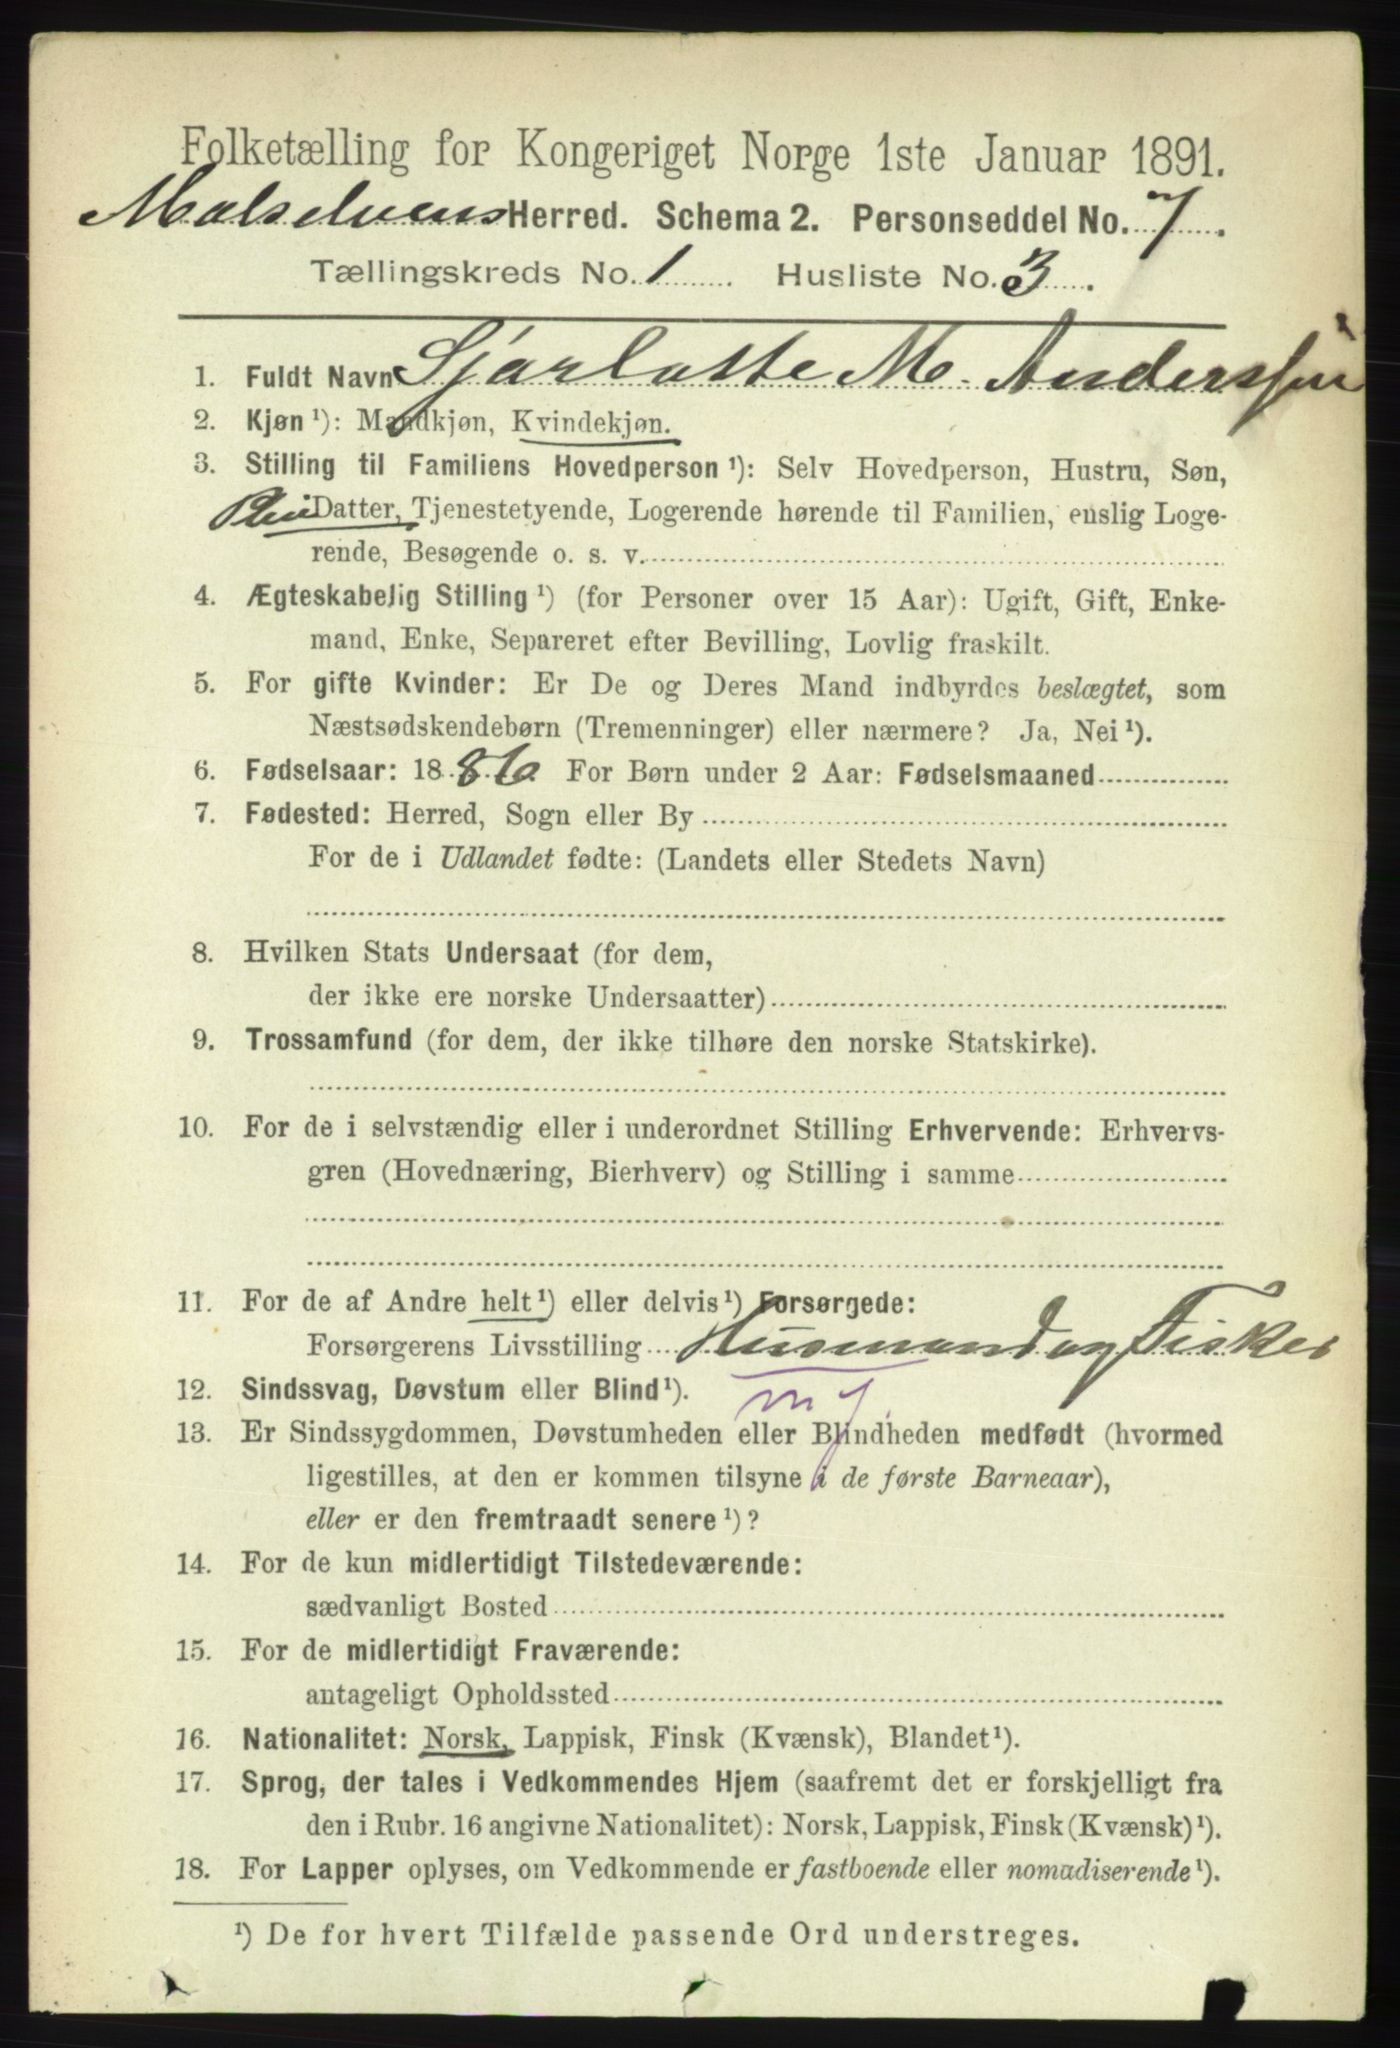 Folketælling for Kongeriget Norge 1ste Januar 1891.
Malselvens Herred. Schema 2. Personseddel No. 7.
Tællingskreds No. 1. Husliste No. 3.
1. Fuldt Navn Sjarlotte M. Anderssen
2. Kjøn ¹): Mandkjøn, Kvindekjøn.
3. Stilling til Familiens Hovedperson ¹): Selv Hovedperson, Hustru, Søn,
Plei Datter, Tjenestetyende, Logerende hørende til Familien, enslig Loge-
rende, Besøgende o. s. v.
4. Ægteskabelig Stilling ¹) (for Personer over 15 Aar): Ugift, Gift, Enke-
mand, Enke, Separeret efter Bevilling, Lovlig fraskilt.
5. For gifte Kvinder: Er De og Deres Mand indbyrdes beslægtet, som
Næstsødskendebørn (Tremenninger) eller nærmere? Ja, Nei ¹).
6. Fødselsaar: 1886 For Børn under 2 Aar: Fødselsmaaned
7. Fødested: Herred, Sogn eller By
For de i Udlandet fødte: (Landets eller Stedets Navn)
8. Hvilken Stats Undersaat (for dem,
der ikke ere norske Undersaatter)
9. Trossamfund (for dem, der ikke tilhøre den norske Statskirke).
10. For de i selvstændig eller i underordnet Stilling Erhvervende: Erhvervs-
gren (Hovednæring, Bierhverv) og Stilling i samme
11. For de af Andre helt ¹) eller delvis ¹) Forsørgede:
Forsørgerens Livsstilling Husmand og Fisker
12. Sindssvag, Døvstum eller Blind ¹). mJ
13. Er Sindssygdommen, Døvstumheden eller Blindheden medfødt (hvormed
ligestilles, at den er kommen tilsyne i de første Barneaar),
eller er den fremtraadt senere ¹)?
14. For de kun midlertidigt Tilstedeværende:
sædvanligt Bosted
15. For de midlertidigt Fraværende:
antageligt Opholdssted
16. Nationalitet: Norsk, Lappisk, Finsk (Kvænsk), Blandet ¹).
17. Sprog, der tales i Vedkommendes Hjem (saafremt det er forskjelligt fra
den i Rubr. 16 angivne Nationalitet): Norsk, Lappisk, Finsk (Kvænsk) ¹).
18. For Lapper oplyses, om Vedkommende er fastboende eller nomadiserende ¹).
¹) De for hvert Tilfælde passende Ord understreges.